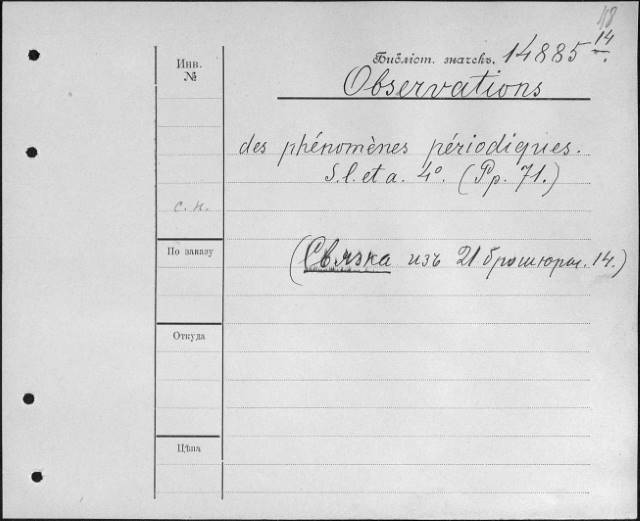 18
Инв.
№
Библіот. значекъ. 14885 14.
Observations
des phénomènes périodiques.
S. l. et a. 4º. (Pp. 71.)
с. н.
По заказу
(Связка изъ 21 брошюры. 14.)
Откуда
Цѣна